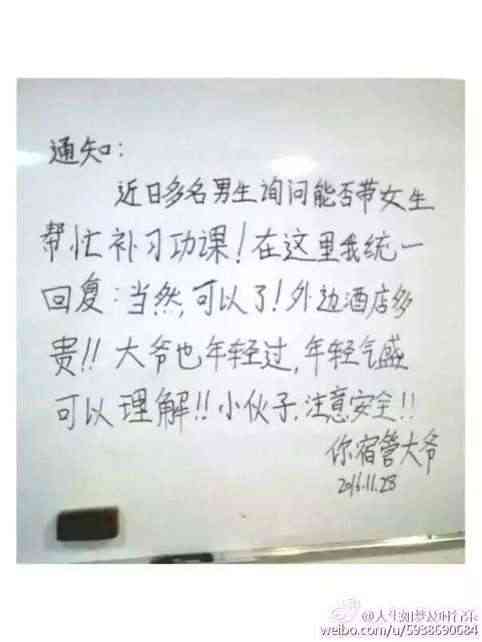 通知:
近日多名男生询问能否带女生
帮忙补习功课!在这里我统一
回复:当然,可以了!外边酒店多
贵!!大爷也年轻过,年轻气盛
可以理解!!小伙子,注意安全!!
你宿管大爷
2016.11.28
@人生如梦及时行乐
weibo.com/u/5938690684